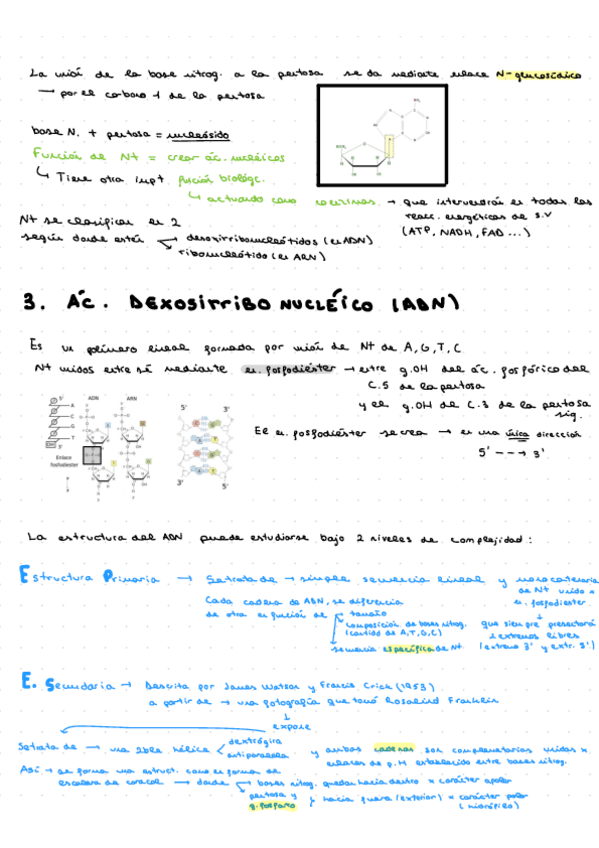 La unión de la base nitrog. a la pentosa se da mediante enlace N-glucosídico
→ por el carbono 1 de la pentosa
base N. + pentosa = nucleósido
Función de Nt = crear ác. nucléicos
↳ Tiene otra impt. función biológc.
↳ actuando como → que intervendrán en todas las
reacc. energéticas de S.V
(ATP, NADH, FAD ...)
Nt se clasifican en 2
según donde estén → desoxirribonucleótidos (en ADN)
ribonucleótido (en ARN)
3. ÁC. DEXOSIRRIBO NUCLÉICO (ADN)
Es un polímero lineal formado por unión de Nt de A, G, T, C
Nt unidos entre sí mediante en. fosfodiéster → entre g.OH del ác. fosfórico del
C.5 de la pentosa
y el g.OH de C.3 de la pentosa
sig.
ADN ARN
A
C
G
T
Enlace
fosfodiester
5' 3'
3' 5'
Ee en. fosfodiéster se crea → en una única dirección
5' ---→ 3'
La estructura del ADN puede estudiarse bajo 2 niveles de complejidad:
Estructura Primaria → Se trata de → simple secuencia lineal y monocatenaria
de Nt unido x
en. fosfodiester
Cada cadena de ADN, se diferencia
de otra en función de → tamaño
composición de bases nitrog.
(cantidad de A, T, G, C)
secuencia específica de Nt
que siempre presentará
2 extremos libres
(extremo 3' y extr. 5')
E. Secundaria → Descrita por James Watson y Francis Crick (1953)
a partir de → una fotografía que tomó Rosalind Franklin
↓
expone
Se trata de → una 2ble hélice < dextrógira
antiparalela
y ambas cadenas son complementarias unidas x
enlaces de p. H establecido entre bases nitrog.
Así → se forma una estruct. como en forma de
escalera de caracol → donde bases nitrog. quedan hacia dentro x carácter apolar
pentosa y
g. fosfato } hacia fuera (exterior) x carácter polar
(hidrófilo)